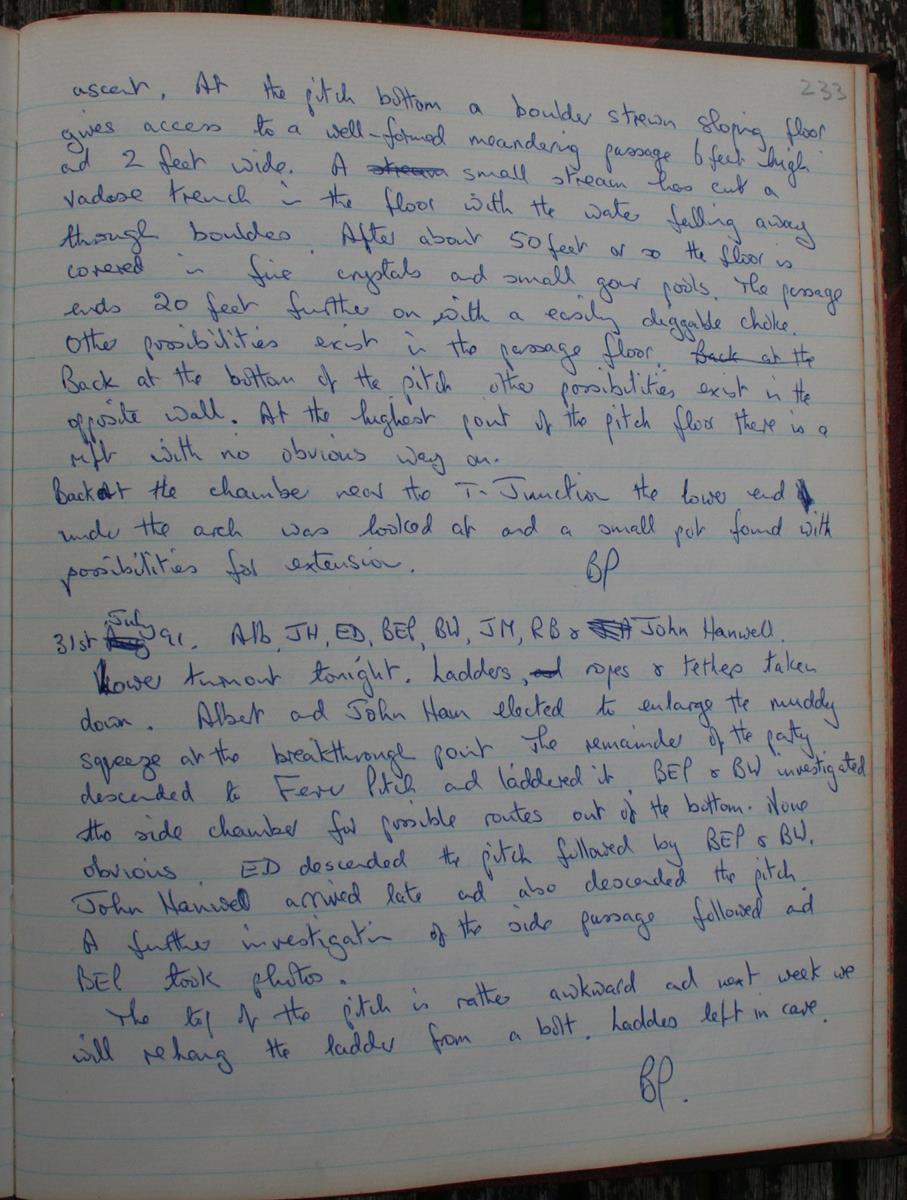 233
ascent. At the pitch bottom a boulder strewn sloping floor
gives access to a well-formed meandering passage 6 feet high
ad 2 feet wide. A stream small stream has cut a
vadose trench in the floor with the water falling away
through boulders. After about 50 feet or so the floor is
covered in fine crystals and small gour pools. The passage
ends 20 feet further on with a easily diggable choke.
Other possibilities exist in the passage floor. Back at the
Back at the bottom of the pitch other possibilities exist in the
opposite wall. At the highest point of the pitch floor there is a
rift with no obvious way on.
Back at the chamber near the T-Junction the lower end
under the arch was looked at and a small pot found with
possibilities for extension. BP
31st July 91. Alb, JH, ED, BEP, BW, JM, RB & John Hanwell.
Lower turnout tonight. Ladders, and ropes & tethers taken
down. Albert ad John Ham elected to enlarge the muddy
squeeze at the breakthrough point The remainder of the party
descended to Pitch ad laddered it BEP & BW investigated
the side chamber for possible routes out of the bottom. None
obvious. ED descended the pitch followed by BEP & BW.
John Hanwell arrived late ad also descended the pitch.
A further investigation of the side passage followed ad
BEP took photos.
The top of the pitch is rather awkward ad next week we
will rehang the ladder from a bolt. Ladders left in cave.
BP.